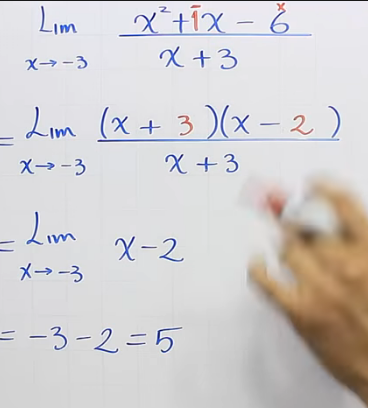 Lim x→-3 (x²+1x-6)/(x+3)
= Lim x→-3 ((x+3)(x-2))/(x+3)
= Lim x→-3 x-2
= -3-2=5